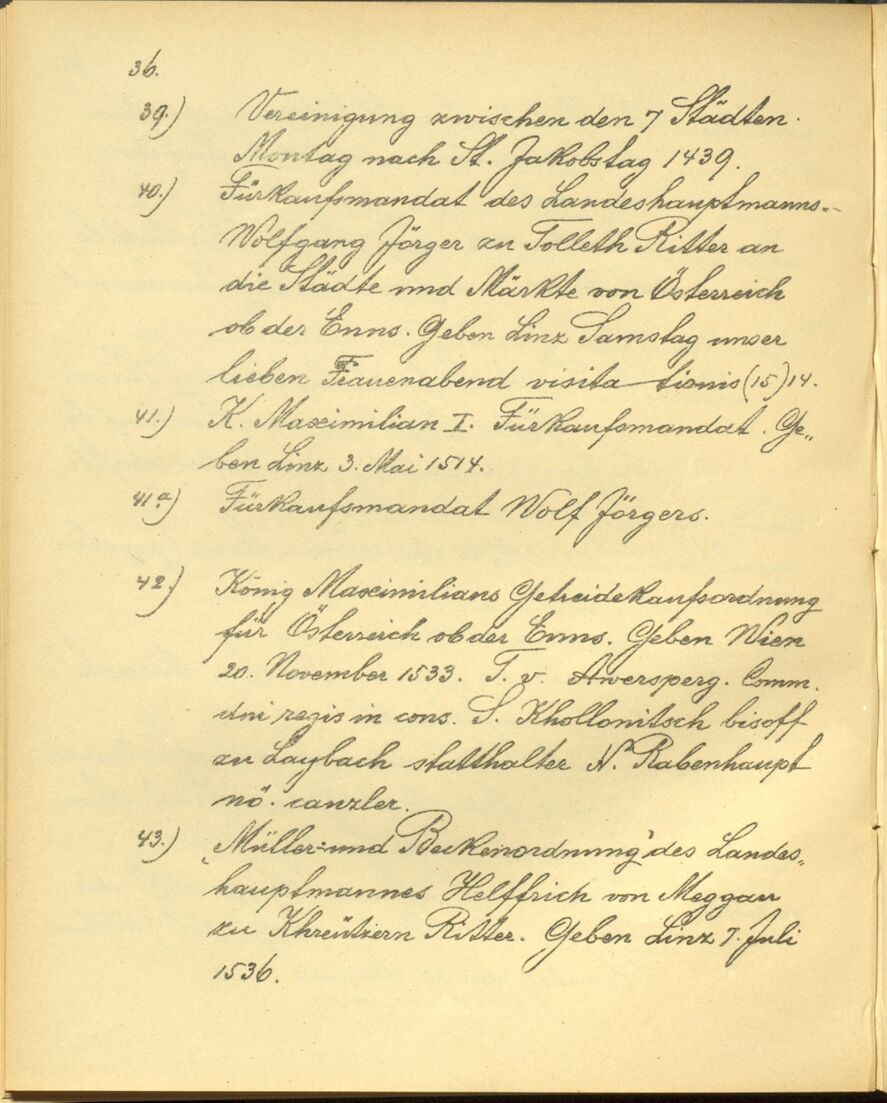 36.
39.) Vereinigung zwischen den 7 Städten.
Montag nach St. Jakobstag 1439.
40.) Fürkaufsmandat des Landeshauptmanns
Wolfgang Jörger zu Tolleth Ritter an
die Städte und Märkte von Österreich
ob der Enns. Geben Linz Samstag unser
lieben Frauenabend visita-tionis (15)14.
41.) K. Maximilian I. Fürkaufsmandat. Ge„
ben Linz 3. Mai 1514.
41a) Fürkaufsmandat Wolf Jörgers.
42.) König Maximilians Getreidekaufsordnung
für Österreich ob der Enns. Geben Wien
20. November 1533. T. v. Awersperg. Comm.
dni regis in cons. S. Khollonitsch bisoff
zu Laybach statthalter N. Rabenhaupt
nö. canzler.
43.) „Müller= und Beckenordnung" des Landes„
hauptmannes Helffrich von Meggau
zu Khreützern Ritter. Geben Linz 7. Juli
1536.